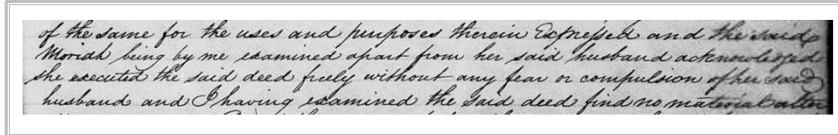 of the same for the uses and purposes therein Expressed and the said
Moriah being by me examined apart from her said husband acknowledged
she executed the said deed freely without any fear or compulsion of her said
husband and I having examined the said deed find no material alter